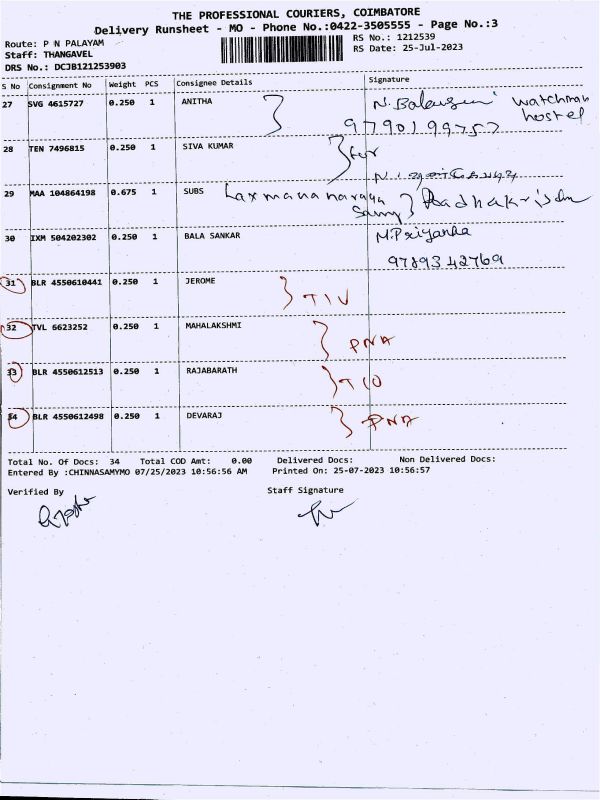 THE PROFESSIONAL COURIERS, COIMBATORE
Delivery Runsheet - MO - Phone No.:0422-3505555 - Page No.:3
Route: P N PALAYAM
RS No.: 1212539
Staff: THANGAVEL
RS Date: 25-Jul-2023
DRS No.: DCJB121253903
S No Consignment No Weight PCS Consignee Details Signature
27 SVG 4615727 0.250 1 ANITHA watchman
hostel
9790199757
28 TEN 7496815 0.250 1 SIVA KUMAR for
29 MAA 104864198 0.675 1 SUBS Laxmana naraya Radhakrishn
Samy
30 IXM 504202302 0.250 1 BALA SANKAR M.Priyanka
9789342769
31 BLR 4550610441 0.250 1 JEROME
32 TVL 6623252 0.250 1 MAHALAKSHMI PNA
33 BLR 4550612513 0.250 1 RAJABARATH
34 BLR 4550612498 0.250 1 DEVARAJ PNA
Total No. Of Docs: 34 Total COD Amt: 0.00 Delivered Docs: Non Delivered Docs:
Entered By :CHINNASAMYMO 07/25/2023 10:56:56 AM Printed On: 25-07-2023 10:56:57
Verified By Staff Signature